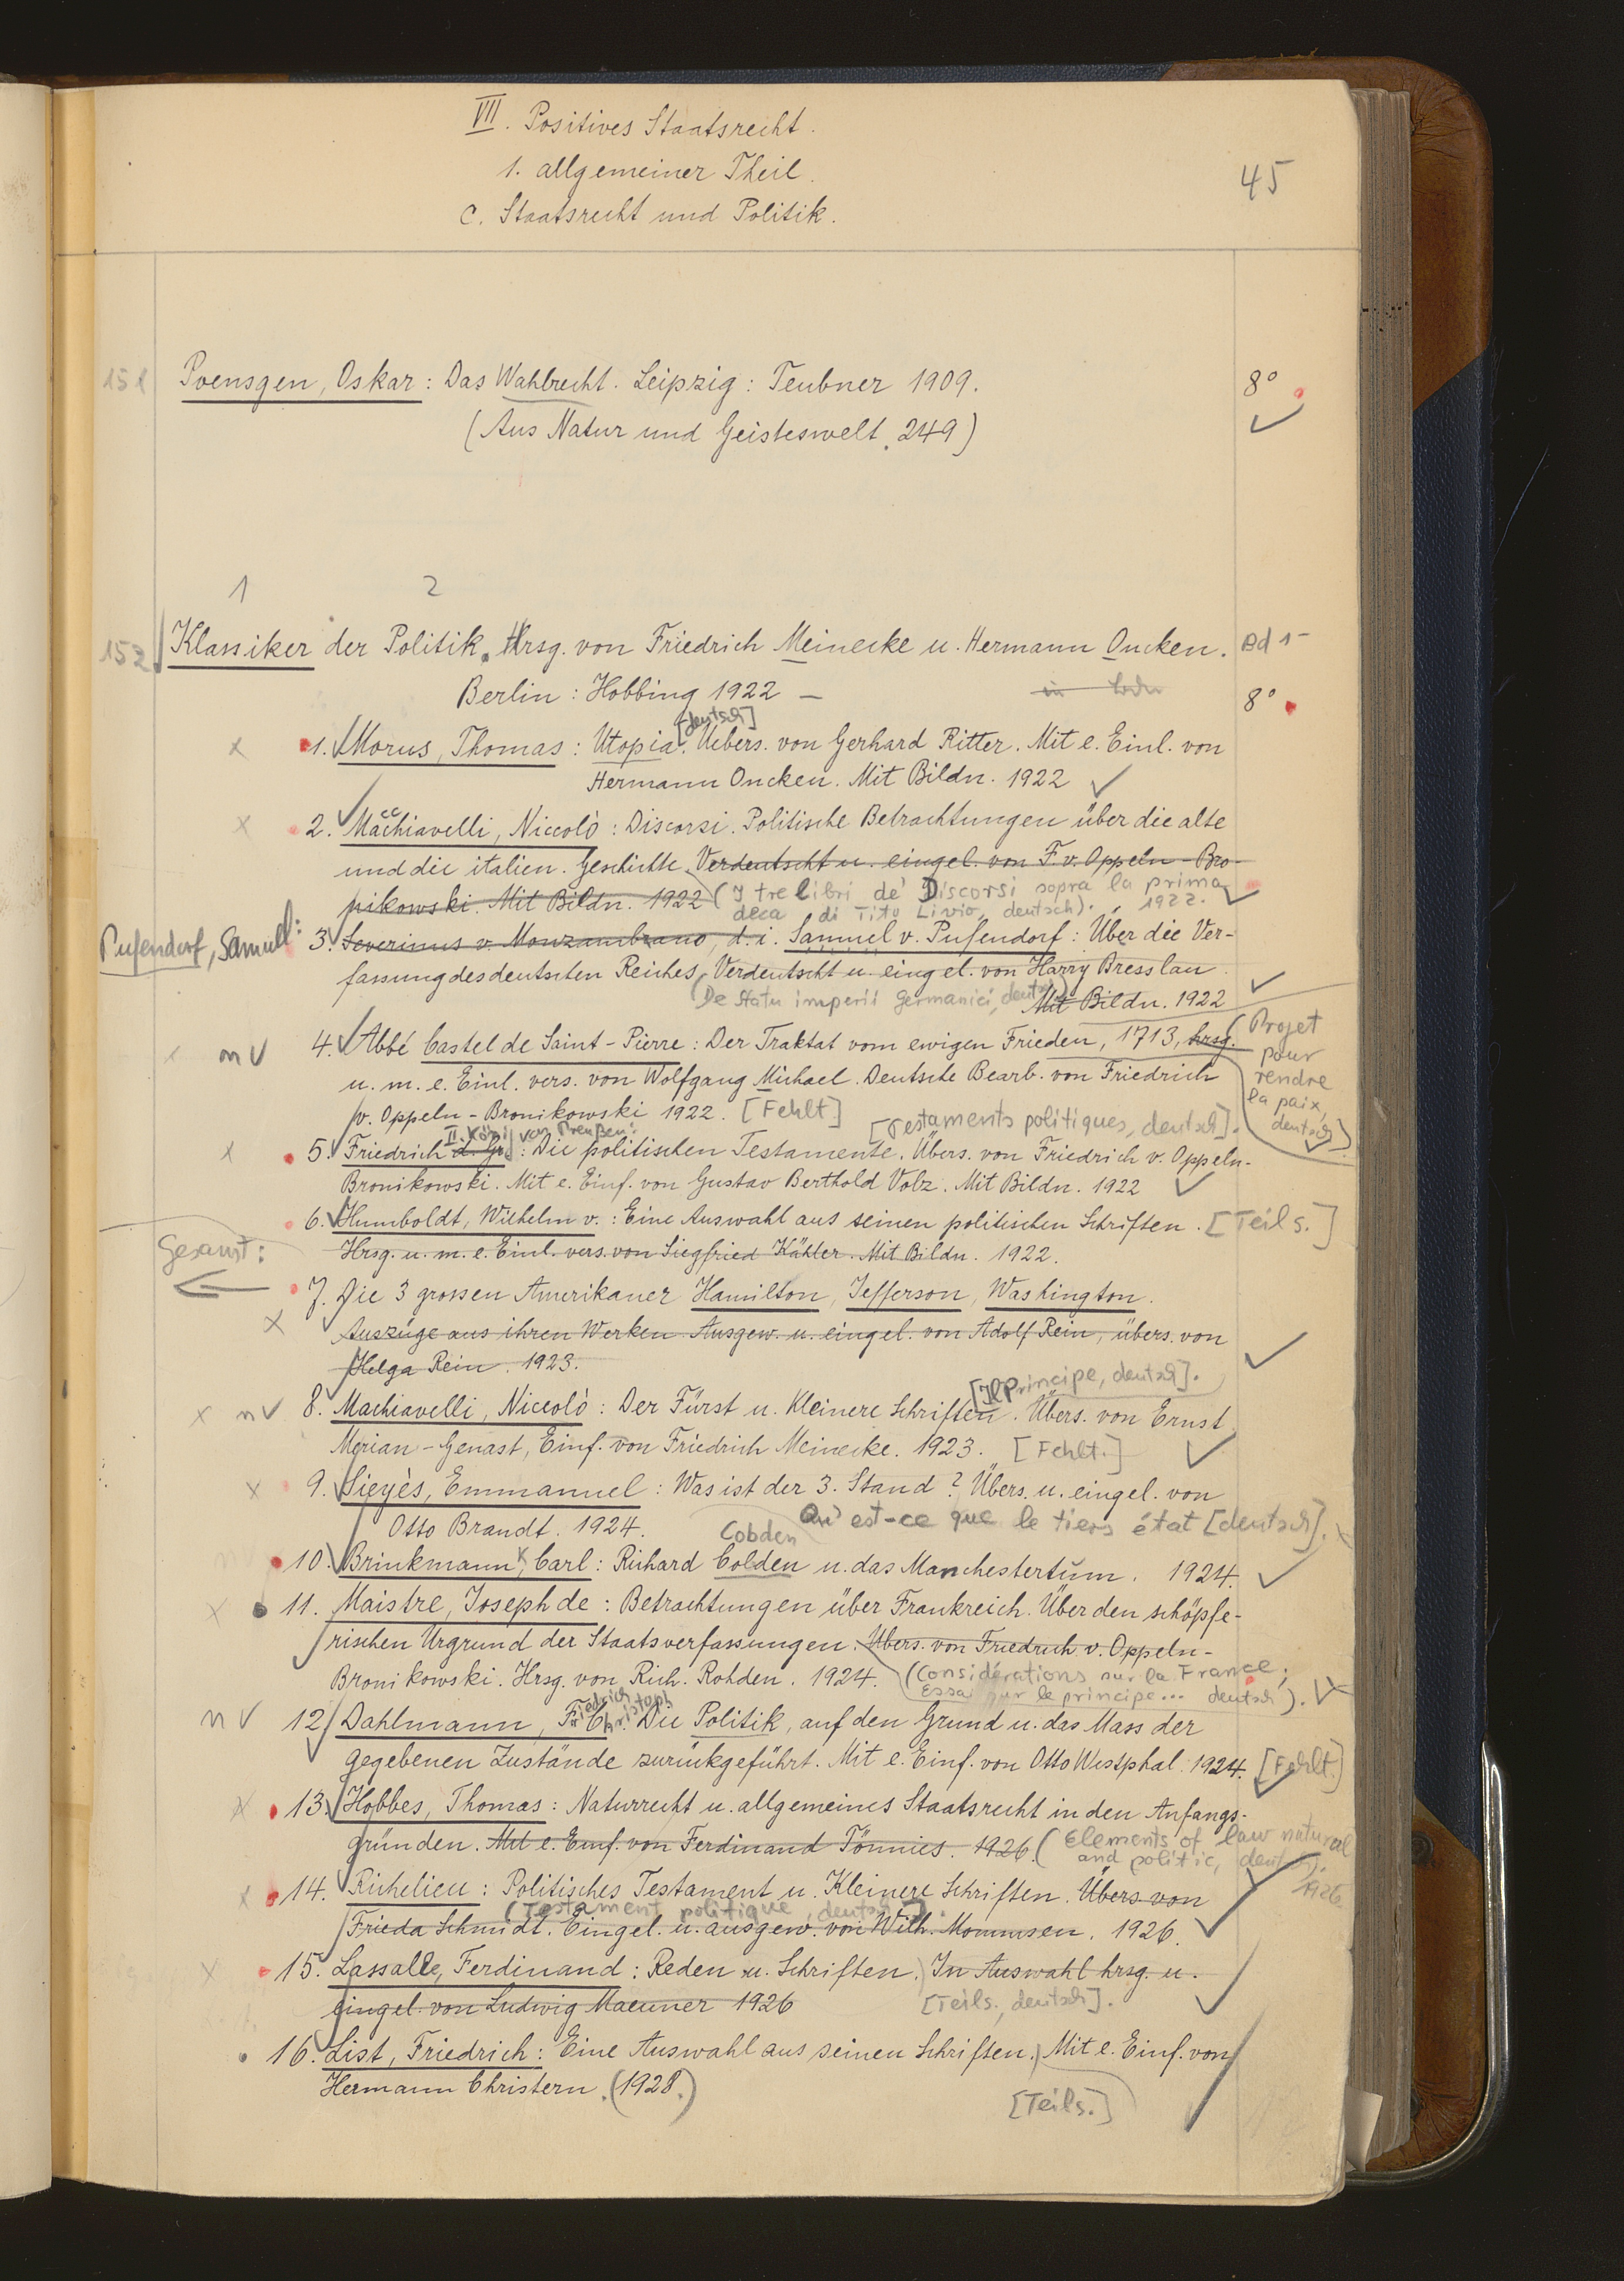 VII. Positives Staatsrecht.
1. allgemeiner Theil.
c. Staatsrecht und Politik.
45
151
Poensgen, Oskar: Das Wahlrecht. Leipzig: Teubner 1909.
8°
(Aus Natur und Geisteswelt. 249)
1 2
152
Klassiker der Politik. Hrsg. von Friedrich Meinecke u. Hermann Oncken.
Bd 1-
Berlin: Hobbing 1922 –
8°
[deutsch]
1. Morus, Thomas: Utopia. Uebers. von Gerhard Ritter. Mit e. Einl. von
Hermann Oncken. Mit Bildn. 1922
cc
2. Machiavelli, Niccolò: Discorsi. Politische Betrachtungen über die alte
und die italien. Geschichte. Verdeutscht u. eingel. von F. v. Oppeln-Bro-
nikowski. Mit Bildn. 1922 (I tre libri de' Discorsi sopra la prima
deca di Tito Livio, deutsch). , 1922.
Pufendorf, Samuel:
3. Severinus v. Monzambrano, d. i. Samuel v. Pufendorf: Über die Ver-
fassung des deutschen Reiches. Verdeutscht u. eingel. von Harry Bresslau.
(De statu imperii Germanici, deutsch)
Mit Bildn. 1922
n v
4. Abbé Castel de Saint-Pierre: Der Traktat vom ewigen Frieden, 1713, hrsg.
(Projet
pour
rendre
la paix,
deutsch)
u. m. e. Einl. vers. von Wolfgang Michael. Deutsche Bearb. von Friedrich
v. Oppeln-Bronikowski 1922. [Fehlt]
[Testaments politiques, deutsch].
II. König von Preußen:
5. Friedrich d. Gr.: Die politischen Testamente. Übers. von Friedrich v. Oppeln-
Bronikowski. Mit e. Einf. von Gustav Berthold Volz. Mit Bildn. 1922
6. Humboldt, Wilhelm v.: Eine Auswahl aus seinen politischen Schriften. [Teils.]
Gesamt:
Hrsg. u. m. e. Einl. vers. von Siegfried Kähler. Mit Bildn. 1922.
7. Die 3 grossen Amerikaner Hamilton, Jefferson, Washington.
Auszüge aus ihren Werken. Ausgew. u. eingel. von Adolf Rein, übers. von
Helga Rein. 1923.
[Il Principe, deutsch].
n v
8. Machiavelli, Niccolò: Der Fürst u. Kleinere Schriften. Übers. von Ernst
Merian-Genast, Einf. von Friedrich Meinecke. 1923. [Fehlt.]
9. Sieyès, Emmanuel: Was ist der 3. Stand? Übers. u. eingel. von
Otto Brandt. 1924.
Qu'est-ce que le tiers état [deutsch].
Cobden
10. Brinkmann, Carl: Richard Colden u. das Manchestertum. 1924.
11. Maistre, Joseph de: Betrachtungen über Frankreich. Über den schöpfe-
rischen Urgrund der Staatsverfassungen. Übers. von Friedrich v. Oppeln-
Bronikowski. Hrsg. von Rich. Rohden. 1924. (Considérations sur la France;
Essai sur le principe... deutsch).
n v
iedrich
ristoph
12. Dahlmann, Fr. Ch.: Die Politik, auf den Grund u. das Mass der
gegebenen Zustände zurückgeführt. Mit e. Einf. von Otto Westphal. 1924. [Fehlt.]
13. Hobbes, Thomas: Naturrecht u. allgemeines Staatsrecht in den Anfangs-
gründen. Mit e. Einf. von Ferdinand Tönnies. 1926. (Elements of law natural
and politic, deutsch).
1926
14. Richelieu: Politisches Testament u. Kleinere Schriften. Übers von
(Testament politique, deutsch).
Frieda Schmidt. Eingel. u. ausgew. von Wilh. Mommsen. 1926.
15. Lassalle, Ferdinand: Reden u. Schriften. In Auswahl hrsg. u.
eingel. von Ludwig Maenner 1926
[Teils., deutsch].
16. List, Friedrich: Eine Auswahl aus seinen Schriften. Mit e. Einf. von
Hermann Christern. (1928.)
[Teils.]